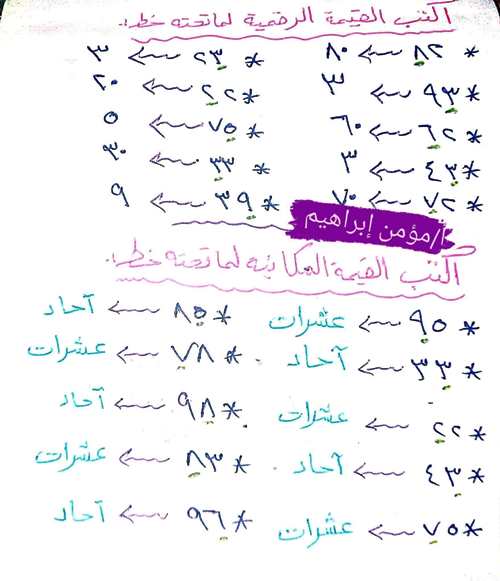 اكتب القيمة الرقمية لما تحته خط:
* ٨٢ ← ٨٠ * ٢٣ ← ٣
* ٩٣ ← ٣ * ٢٢ ← ٢٠
* ٦٢ ← ٦٠ * ٧٥ ← ٥
* ٤٣ ← ٣ * ٣٣ ← ٣٠
* ٧٢ ← ٧٠ * ٣٩ ← ٩
أ/مؤمن إبراهيم
اكتب القيمة المكانية لما تحته خط:
* ٩٥ ← عشرات * ٨٥ ← آحاد
* ٣٣ ← آحاد * ٧٨ ← عشرات
* ٢٢ ← عشرات * ٩٨ ← آحاد
* ٤٣ ← آحاد * ٨٣ ← عشرات
* ٧٥ ← عشرات * ٩٦ ← آحاد